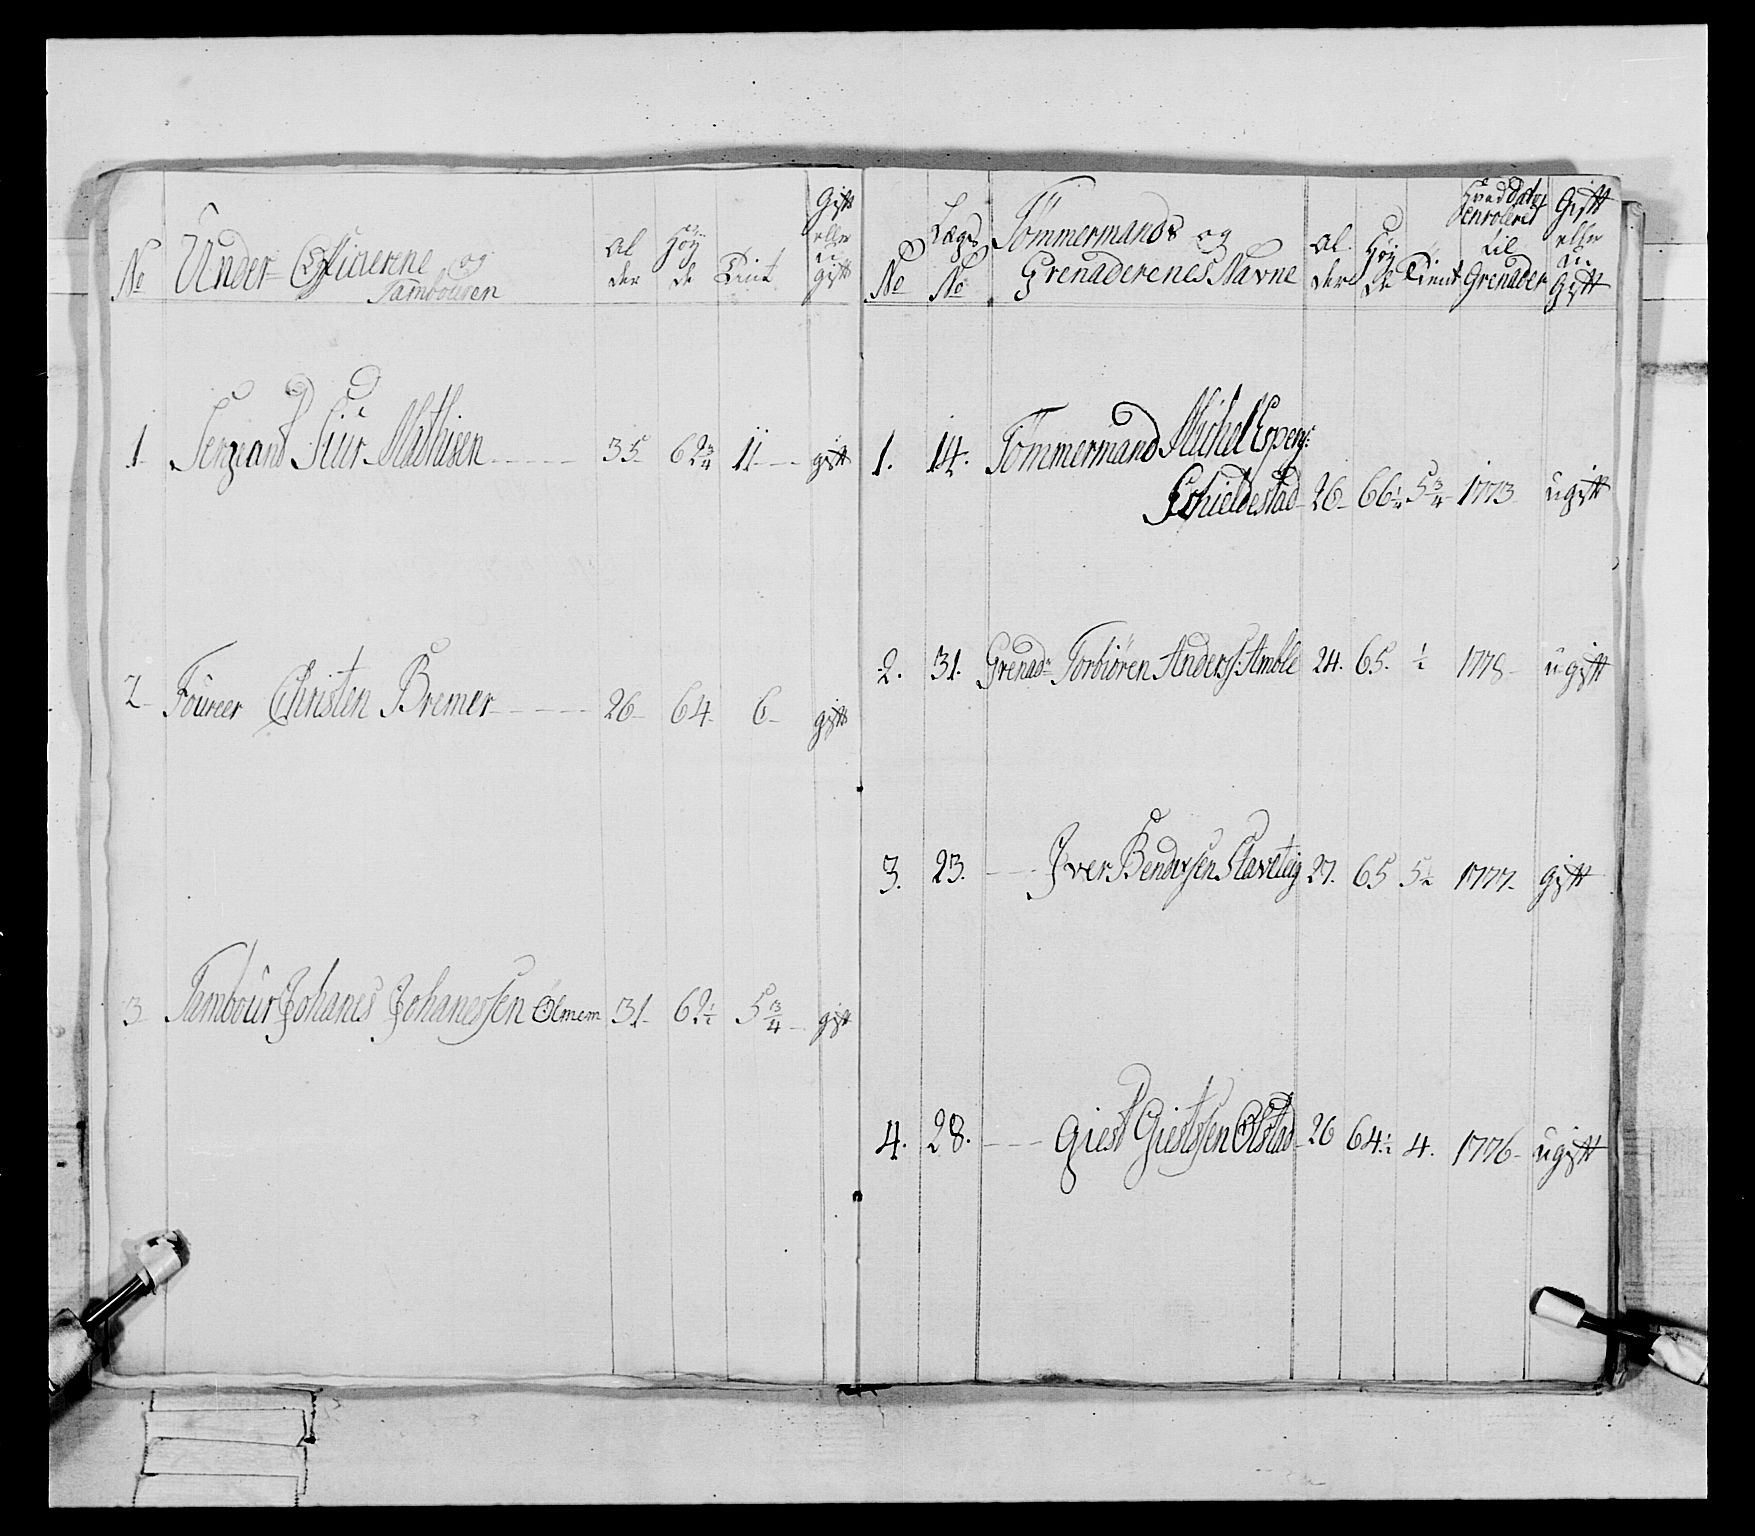 No Under Officierene og Tambouren Al der Høy de Tient Gift eller u gift
1 Sergeant Siur Mathisen 35 62 3/4 11 gift
2 Foureer Christen Bremer 26 64 6 gift
3 Tambour Johanes Johanessen Ølmem 31 62 1/2 5 3/4 gift
No Lægs No Tømmermands og Grenaderenes Navne Al der Høy de Tient Hvad Dato enroleret til Grenader Gift eller u Gift
1. 14. Tømmermand Michel Espens:
Schieldestad 26 66 1/4 5 3/4 1773 ugift
2. 31. Grenadr Torbiøren Anders: Amble 24. 65. 1/2 1778 ugift
3. 23. Iver Bendixsen Slavteig 27. 65 5 1/2 1777 gift
4. 28. Giest Giestssen Olstad 26 64 1/2 4. 1776 ugift